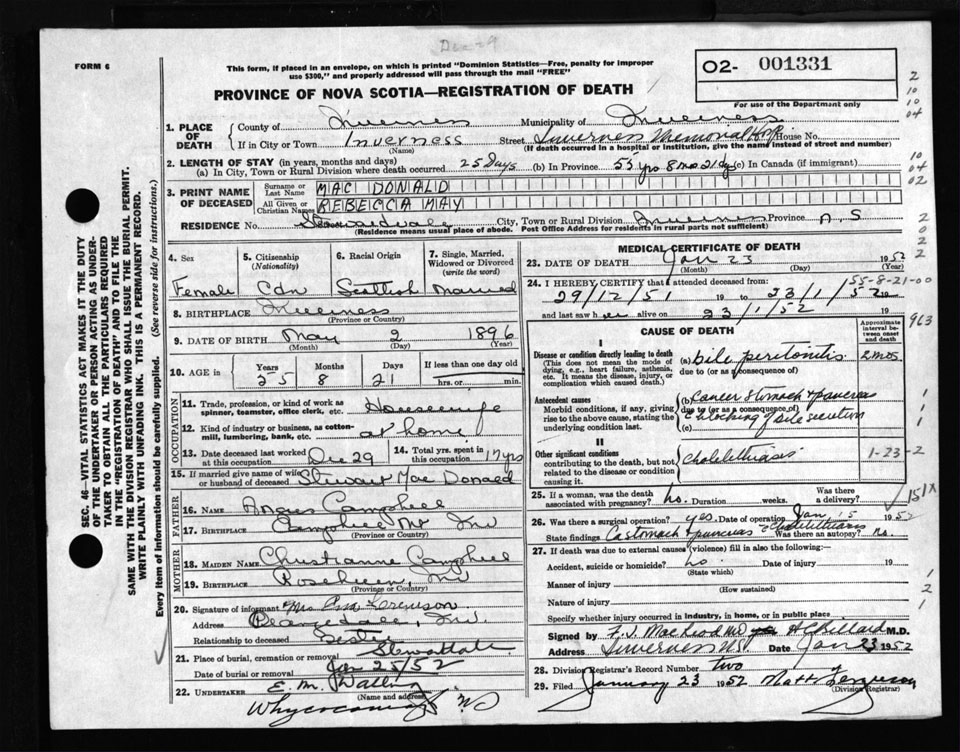 Dec - 9
FORM 6
This form, if placed in an envelope, on which is printed "Dominion Statistics—Free, penalty for improper
use $300," and properly addressed will pass through the mail "FREE"
PROVINCE OF NOVA SCOTIA—REGISTRATION OF DEATH
02- 001331
For use of the Department only
1. PLACE OF DEATH
County of Inverness Municipality of Inverness
If in City or Town Inverness Street Inverness Memorial Hosp. House No.
(Name) (If death occurred in a hospital or institution, give the name instead of street and number)
2. LENGTH OF STAY (in years, months and days)
(a) In City, Town or Rural Division where death occurred 25 days (b) In Province 55 yrs 8 mo 21 dys (c) In Canada (if immigrant)
3. PRINT NAME OF DECEASED
Surname or Last Name MAC DONALD
All Given or Christian Names REBECCA MAY
RESIDENCE No. City, Town or Rural Division Inverness Province N.S
(Residence means usual place of abode. Post Office Address for residents in rural parts not sufficient)
4. Sex Female
5. Citizenship (Nationality) Cdn
6. Racial Origin Scottish
7. Single, Married, Widowed or Divorced (write the word) Married
8. BIRTHPLACE Inverness
(Province or Country)
9. DATE OF BIRTH May 2 1896
(Month) (Day) (Year)
10. AGE in Years 55 Months 8 Days 21 If less than one day old hrs. or min.
OCCUPATION
11. Trade, profession, or kind of work as spinner, teamster, office clerk, etc. Housewife
12. Kind of industry or business, as cotton-mill, lumbering, bank, etc. at home
13. Date deceased last worked at this occupation Dec 29
14. Total yrs. spent in this occupation 17 yrs
15. If married give name of wife or husband of deceased Stewart Mac Donald
FATHER
16. NAME Angus Campbell
17. BIRTHPLACE Campbell Mt Inv
(Province or Country)
MOTHER
18. MAIDEN NAME Christianne Campbell
19. BIRTHPLACE Inv
(Province or Country)
20. Signature of informant Mrs
Address Orangedale, Inv.
Relationship to deceased Sister
21. Place of burial, cremation or removal
Date of burial or removal Jan 25/52
22. UNDERTAKER E. M.
(Name and address)
Whycocomagh NS
MEDICAL CERTIFICATE OF DEATH
23. DATE OF DEATH Jan 23 1952
(Month) (Day) (Year)
24. I HEREBY CERTIFY that I attended deceased from: 55-8-21-00
29/12/51 19 to 23/1/52 19
and last saw her alive on 23/1/52 19
963
CAUSE OF DEATH
Approximate interval between onset and death
I
Disease or condition directly leading to death (a) bile peritonitis 2 mos.
(This does not mean the mode of dying, e.g., heart failure, asthenia, etc. It means the disease, injury, or complication which caused death.)
due to (or as a consequence of)
Antecedent causes (b) Cancer Stomach + pancreas
Morbid conditions, if any, giving rise to the above cause, stating the underlying condition last.
due to (or as a consequence of)
(c) blocking of bile secretion
II
Other significant conditions Cholelithiasis 1-23-2
contributing to the death, but not related to the disease or condition causing it.
25. If a woman, was the death associated with pregnancy? no. Duration weeks. Was there a delivery?
151X
26. Was there a surgical operation? yes. Date of operation Jan 15 1952
State findings Ca stomach + pancreas Cholelithiasis Was there an autopsy? No.
27. If death was due to external causes (violence) fill in also the following:—
Accident, suicide or homicide? no. Date of injury 19
(State which)
Manner of injury
(How sustained)
Nature of injury
Specify whether injury occurred in industry, in home, or in public place
Signed by MacLeod MD M.D.
Address Inverness N.S. Date Jan 23 1952
28. Division Registrar's Record Number two
29. Filed January 23 1952 Matt Ferguson
(Division Registrar)
SEC. 46—VITAL STATISTICS ACT MAKES IT THE DUTY
OF THE UNDERTAKER OR PERSON ACTING AS UNDER-
TAKER TO OBTAIN ALL THE PARTICULARS REQUIRED
IN THE "REGISTRATION OF DEATH" AND TO FILE THE
SAME WITH THE DIVISION REGISTRAR WHO SHALL ISSUE THE BURIAL PERMIT.
WRITE PLAINLY WITH UNFADING INK. THIS IS A PERMANENT RECORD.
Every item of information should be carefully supplied. (See reverse side for instructions.)